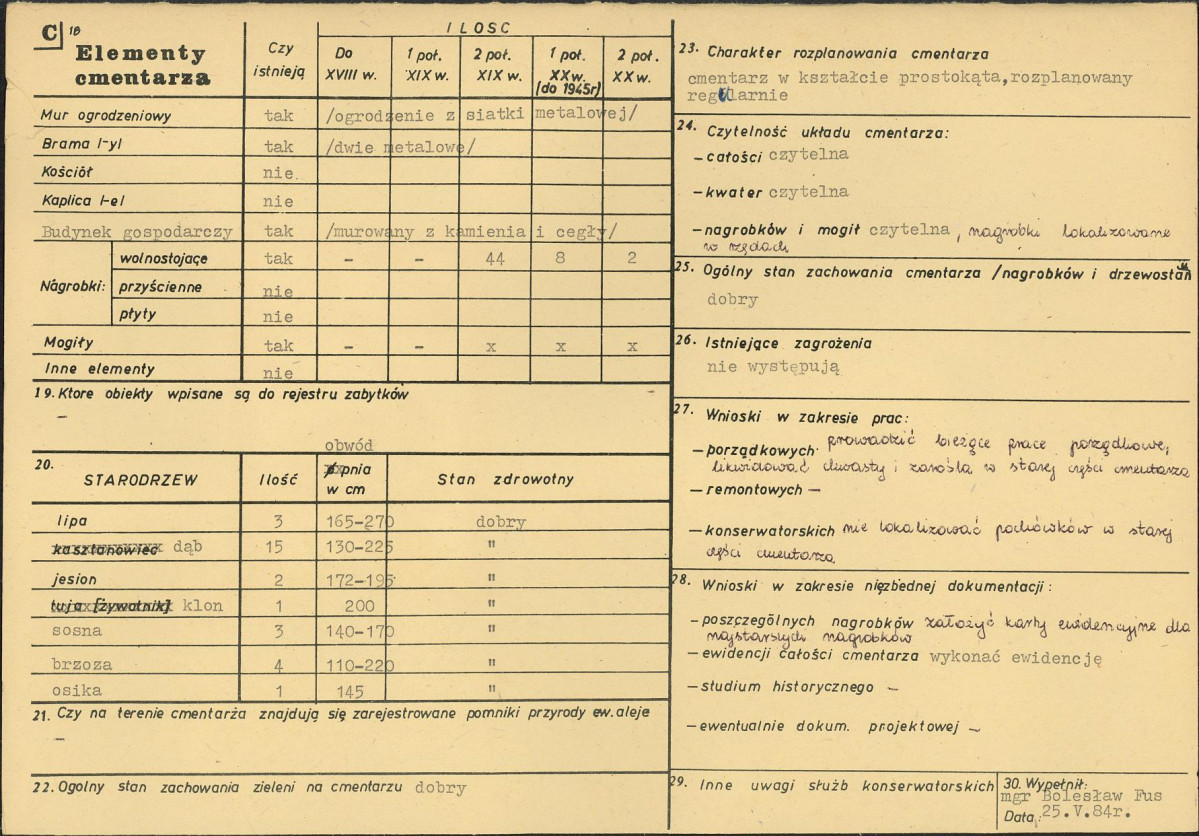 C 18 Elementy cmentarza
Czy istnieją
ILOSC
Do XVIII w.
1 poł. XIX w.
2 poł. XIX w.
1 poł. XX w. (do 1945r)
2 poł. XX w.
Mur ogrodzeniowy tak /ogrodzenie z siatki metalowej/
Brama I-yl tak /dwie metalowe/
Kościół nie
Kaplica I-el nie
Budynek gospodarczy tak /murowany z kamienia i cegły/
Nagrobki: wolnostojące tak – – 44 8 2
przyścienne nie
płyty nie
Mogiły tak – – x x x
Inne elementy nie
19. Ktore obiekty wpisane są do rejestru zabytków
–
20. STARODRZEW Ilość obwód pnia w cm Stan zdrowotny
lipa 3 165-270 dobry
kasztanowiec dąb 15 130-225 "
jesion 2 172-195 "
tuja [żywotnik] klon 1 200 "
sosna 3 140-170 "
brzoza 4 110-220 "
osika 1 145 "
21. Czy na terenie cmentarza znajdują się zarejestrowane pomniki przyrody ew. aleje
–
22. Ogolny stan zachowania zieleni na cmentarzu dobry
23. Charakter rozplanowania cmentarza
cmentarz w kształcie prostokąta,rozplanowany
regularnie
24. Czytelność układu cmentarza:
– całości czytelna
– kwater czytelna
– nagrobków i mogił czytelna, nagrobki lokalizowane
w rzędach
25. Ogólny stan zachowania cmentarza /nagrobków i drzewostan
dobry
26. Istniejące zagrożenia
nie występują
27. Wnioski w zakresie prac:
– porządkowych prowadzić bieżące prace porządkowe,
likwidować chwasty i zarośla w starej części cmentarza
– remontowych –
– konserwatorskich nie lokalizować pochówków w starej
części cmentarza
28. Wnioski w zakresie niezbednej dokumentacji:
– poszczególnych nagrobków założyć karty ewidencyjne dla
najstarszych nagrobków
– ewidencji całości cmentarza wykonać ewidencję
– studium historycznego –
– ewentualnie dokum. projektowej –
29. Inne uwagi służb konserwatorskich
30. Wypełnił:
mgr Bolesław Fus
Data: 25.V.84r.